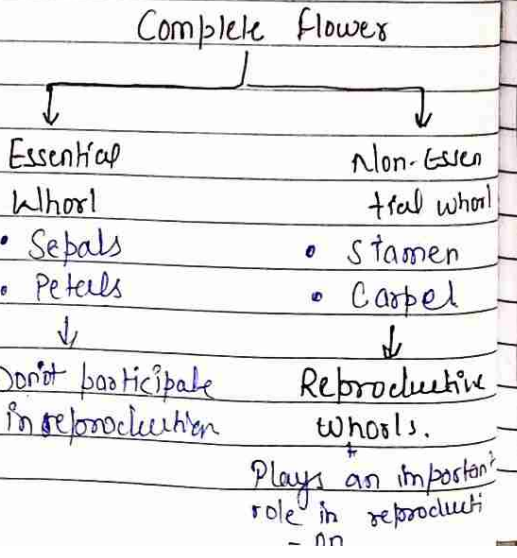 Complete flower
Essential
Whorl
• Sepals
• Petals
Don't participate
in reproduction
Non-Essen
tial whorl
• Stamen
• Carpel
Reproductive
whorls.
Plays an important
role in reproducti
- on